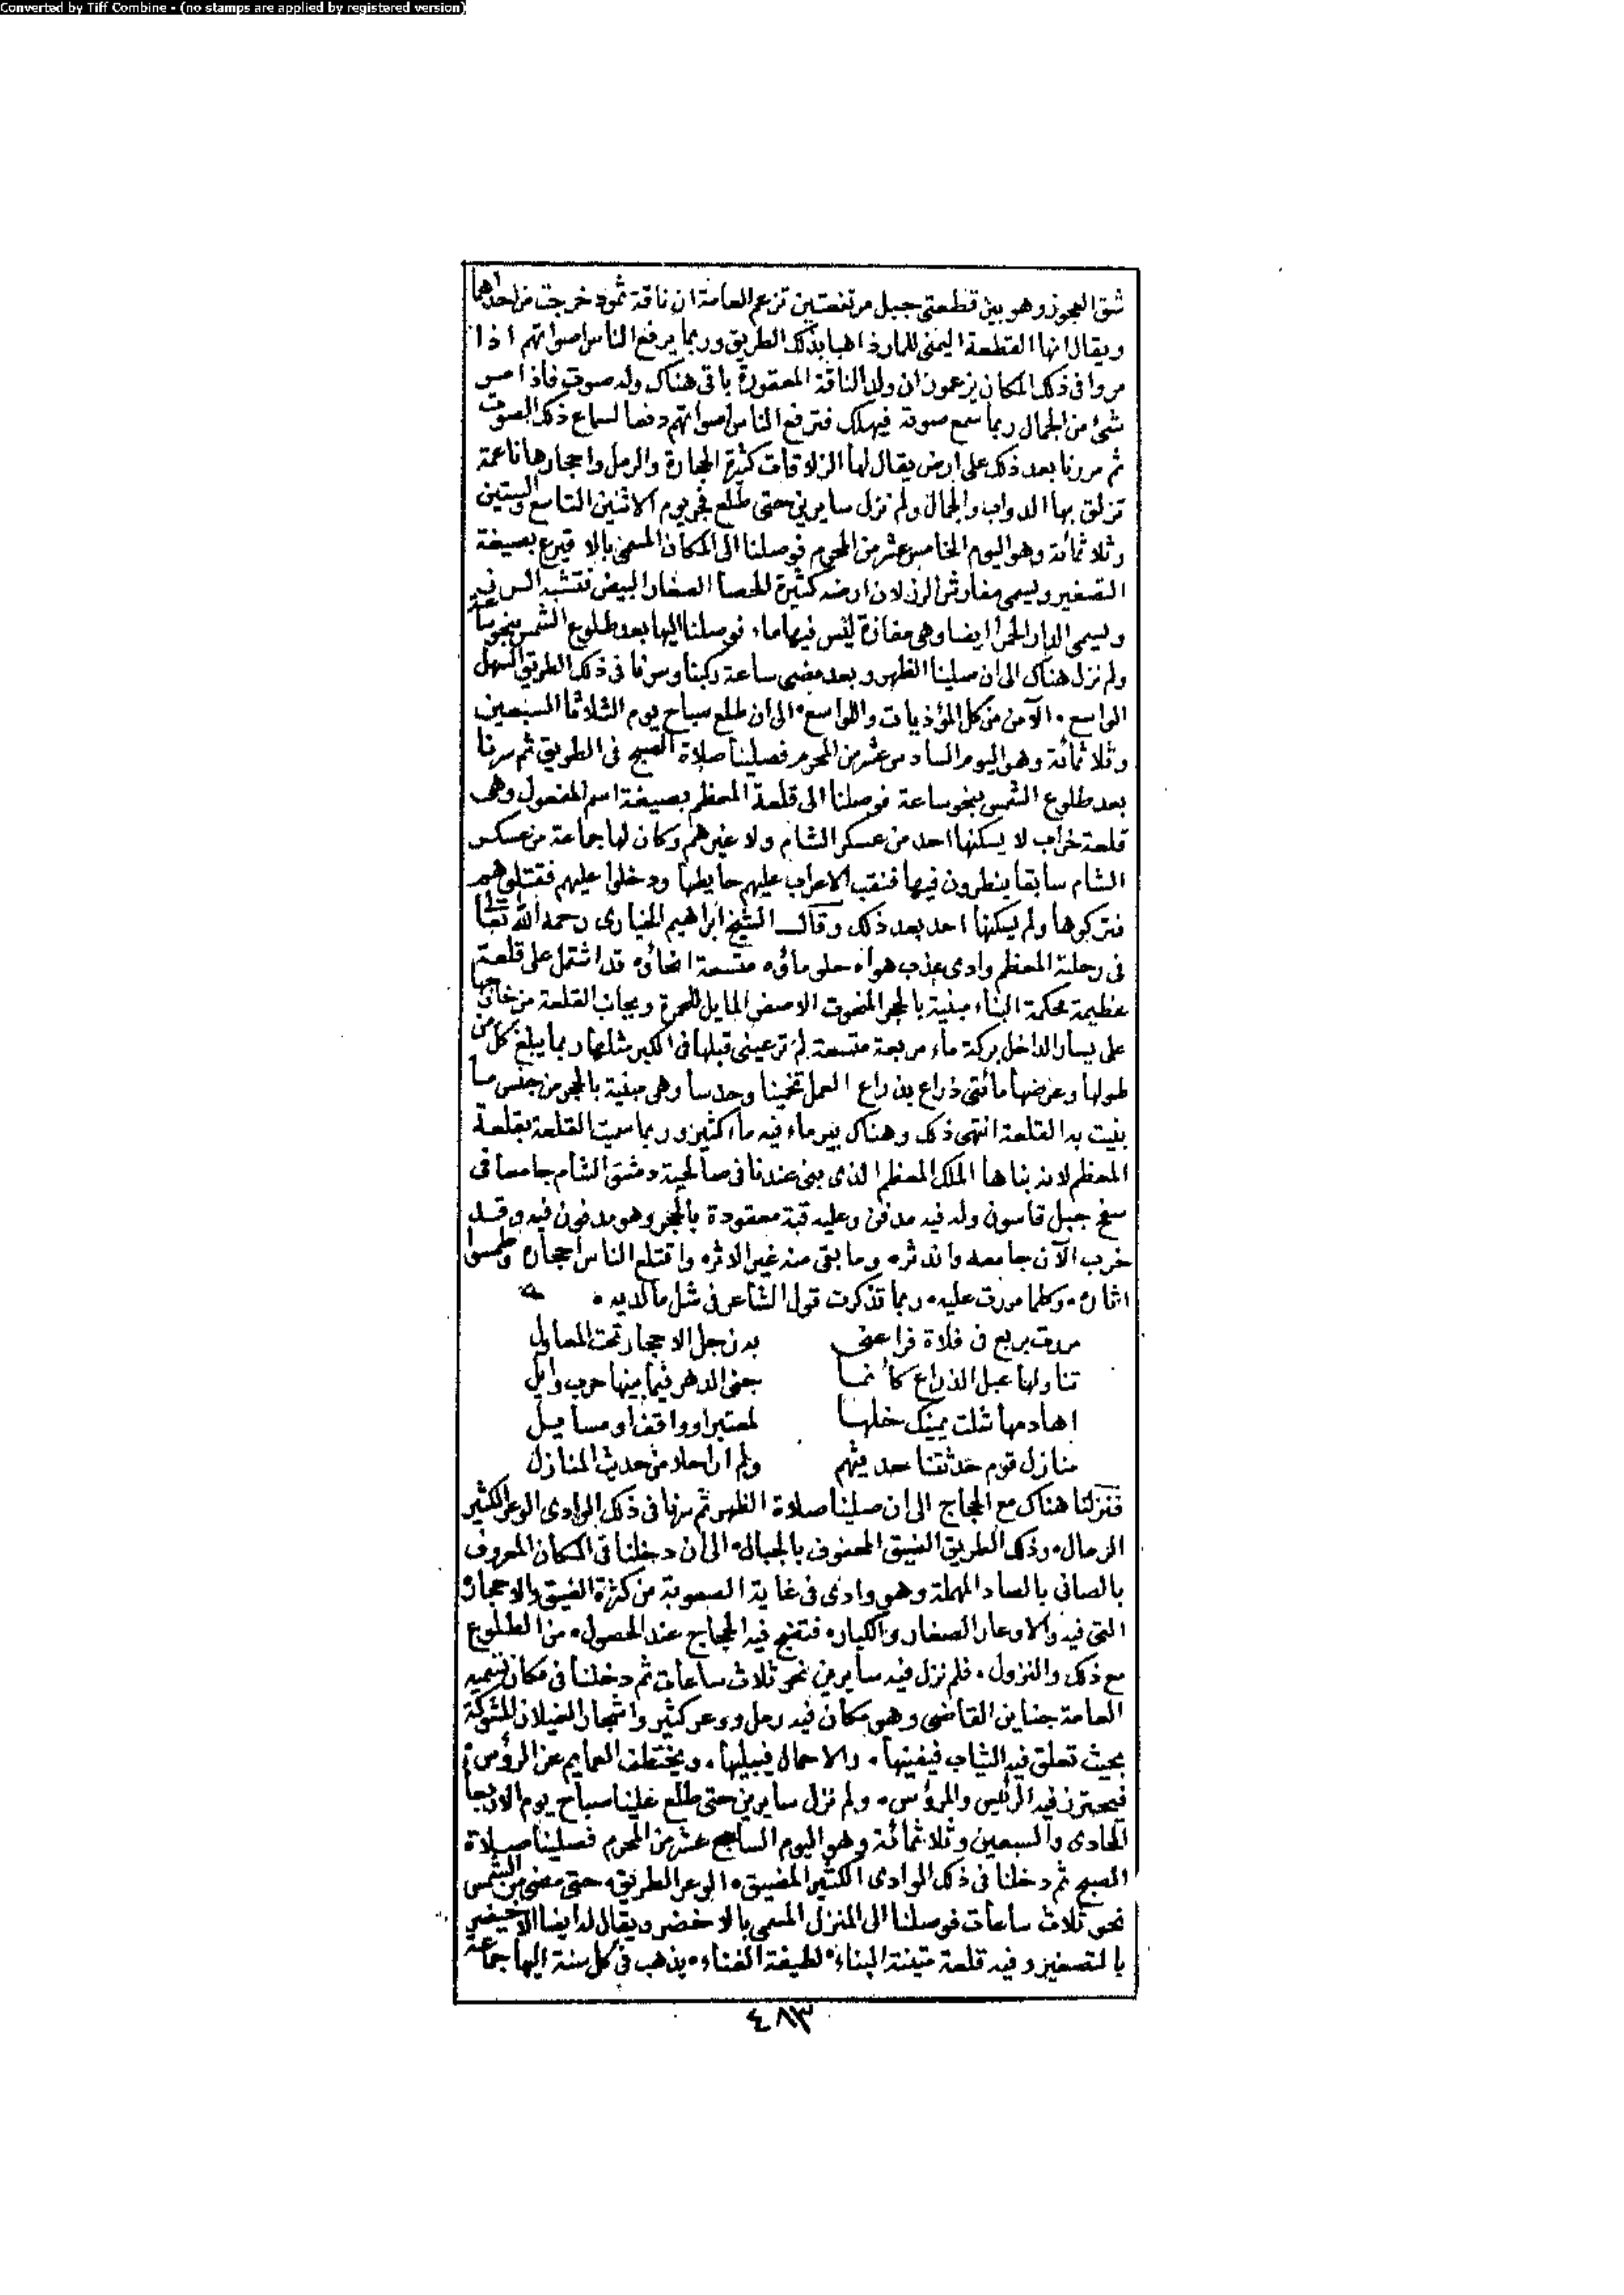 Converted by Tiff Combine - (no stamps are applied by registered version)
شق العجوز وهو بين قطعتي جبل مرتفعتين تزعم العامة ان ناقة ثمود خرجت من احداهما
ويقال انها القطعة اليمنى للمار ذاهبا بذلك الطريق وربما يرفع الناس اصواتهم اذا
مروا في ذلك المكان يزعمون ان ولد الناقة المعقورة باقى هناك وله صوت فاذا مر
شئ من الجمال ربما سمع صوته فيهلك فترفع الناس اصواتهم دفعا لسماع ذلك الصوت
ثم مررنا بعد ذلك على ارض يقال لها الزلاقات كثيرة الحجارة والرمل واحجارها ناعمة
تزلق بها الدواب والجمال ولم نزل سايرين حتى طلع فجر يوم الاثنين التاسع والستين
وثلاثمائة وهو اليوم الخامس عشر من المحرم فوصلنا الى المكان المسمى بالاقيرع بصيغة
التصغير ويسمى مفارش الرز لان ارضه كثيرة الحصا الصغار البيض فتشبه الرز فيه
وليسمى الدار الحمرا ايضا وهي مفازة ليس فيها ماء فوصلنا اليها بعد طلوع الشمس بنحو ساعة
ولم نزل هناك الى ان صلينا الظهر وبعد مضى ساعة ركبنا وسرنا في ذلك الطريق السهل
الواسع، الآمن من كل المؤذيات واللواسع، الى ان طلع صباح يوم الثلاثا السبعين
وثلاثمائة وهو اليوم السادس عشر من المحرم فصلينا صلاة الصبح في الطريق ثم سرنا
بعد طلوع الشمس بنحو ساعة فوصلنا الى قلعة المعظم بصيغة اسم المفعول وهى
قلعة خراب لا يسكنها احد من عسكر الشام ولا غيرهم وكان لها جماعة من عسكر
الشام سابقا ينطرون فيها فنقب الاعراب عليهم حايطها ودخلوا عليهم فقتلوهم
فتركوها ولم يسكنها احد بعد ذلك وقال الشيخ ابراهيم الخيارى رحمه الله تعالى
في رحلته المعظم وادى عذب هواه حلى ماؤه متسعة انحاؤه قد اشتمل على قلعة
عظيمة محكمة البناء مبنية بالحجر المنحوت الاصفر المايل للحمرة وبجانب القلعة من خارجها
على يسار الداخل بركة ماء مربعة متسعة لم تر عينى قبلها في الكبر مثلها ربما يبلغ كل من
طولها وعرضها مائتى ذراع بذراع العمل تخمينا وحدسا وهي مبنية بالحجر من جنس ما
بنيت به القلعة انتهى ذلك وهناك بير ماء فيه ماء كثير وربما سميت القلعة بقلعة
المعظم لانه بناها الملك المعظم الذى بنى عندنا في صالحية دمشق الشام جامعا في
سفح جبل قاسون وله فيه مدفن وعليه قبة معقودة بالحجر وهو مدفون فيه وقد
خرب الآن جامعه واندثر، وما بقى منه غير الاثر، واقتلع الناس احجاره وطمسوا
اثاره، وكلما مررت عليه، ربما تذكرت قول الشاعر في مثل ما لديه،
مررت بربع في فلاة فراعنى بدن جل الاحجار تحت المعاول
تناولها عبل الذراع كأنما جنى الدهر فيما بينها حرب وايل
اهادمها شلت يمينك خلها لمعتبر او واقف او مسايل
منازل قوم حدثتنا حديثهم ولم ار احلا من حديث المنازل
فنزلنا هناك مع الحجاج الى ان صلينا صلاة الظهر ثم سرنا في ذلك الوادى الوعر الكثير
الرمال، وذلك الطريق الضيق المحفوف بالجبال، الى ان دخلنا في المكان المعروف
بالصانى بالصاد المهملة وهو وادى في غاية الصعوبة من كثرة الضيق والاحجار
التي فيه والاوعار الصغار والكبار، فتضج فيه الحجاج عند الحصول، من الطلوع
مع ذلك والنزول، فلم نزل فيه سايرين نحو ثلاث ساعات ثم دخلنا في مكان تسميه
العامة جناين القاضى وهو مكان فيه رمل ووعر كثير واشجار الغيلان المشوكة
بحيث تعلق فيه الثياب فيفنيها، والاحمال فيبليها، ويختطف العمايم عن الرؤس،
فيحترز فيه الرئيس والمرؤس، ولم نزل سايرين حتى طلع علينا صباح يوم الاربعا
الحادى والسبعين وثلاثمائة وهو اليوم السابع عشر من المحرم فصلينا صلاة
الصبح ثم دخلنا في ذلك الوادى الكثير المضيق، الوعر الطريق، حتى مضى من الشمس
نحو ثلاث ساعات فوصلنا الى المنزل المسمى بالاخضر ويقال له ايضا الاخيضر
بالتصغير وفيه قلعة متينة البناء، لطيفة الفناء، يذهب في كل سنة اليها جماعة
٤٨٣